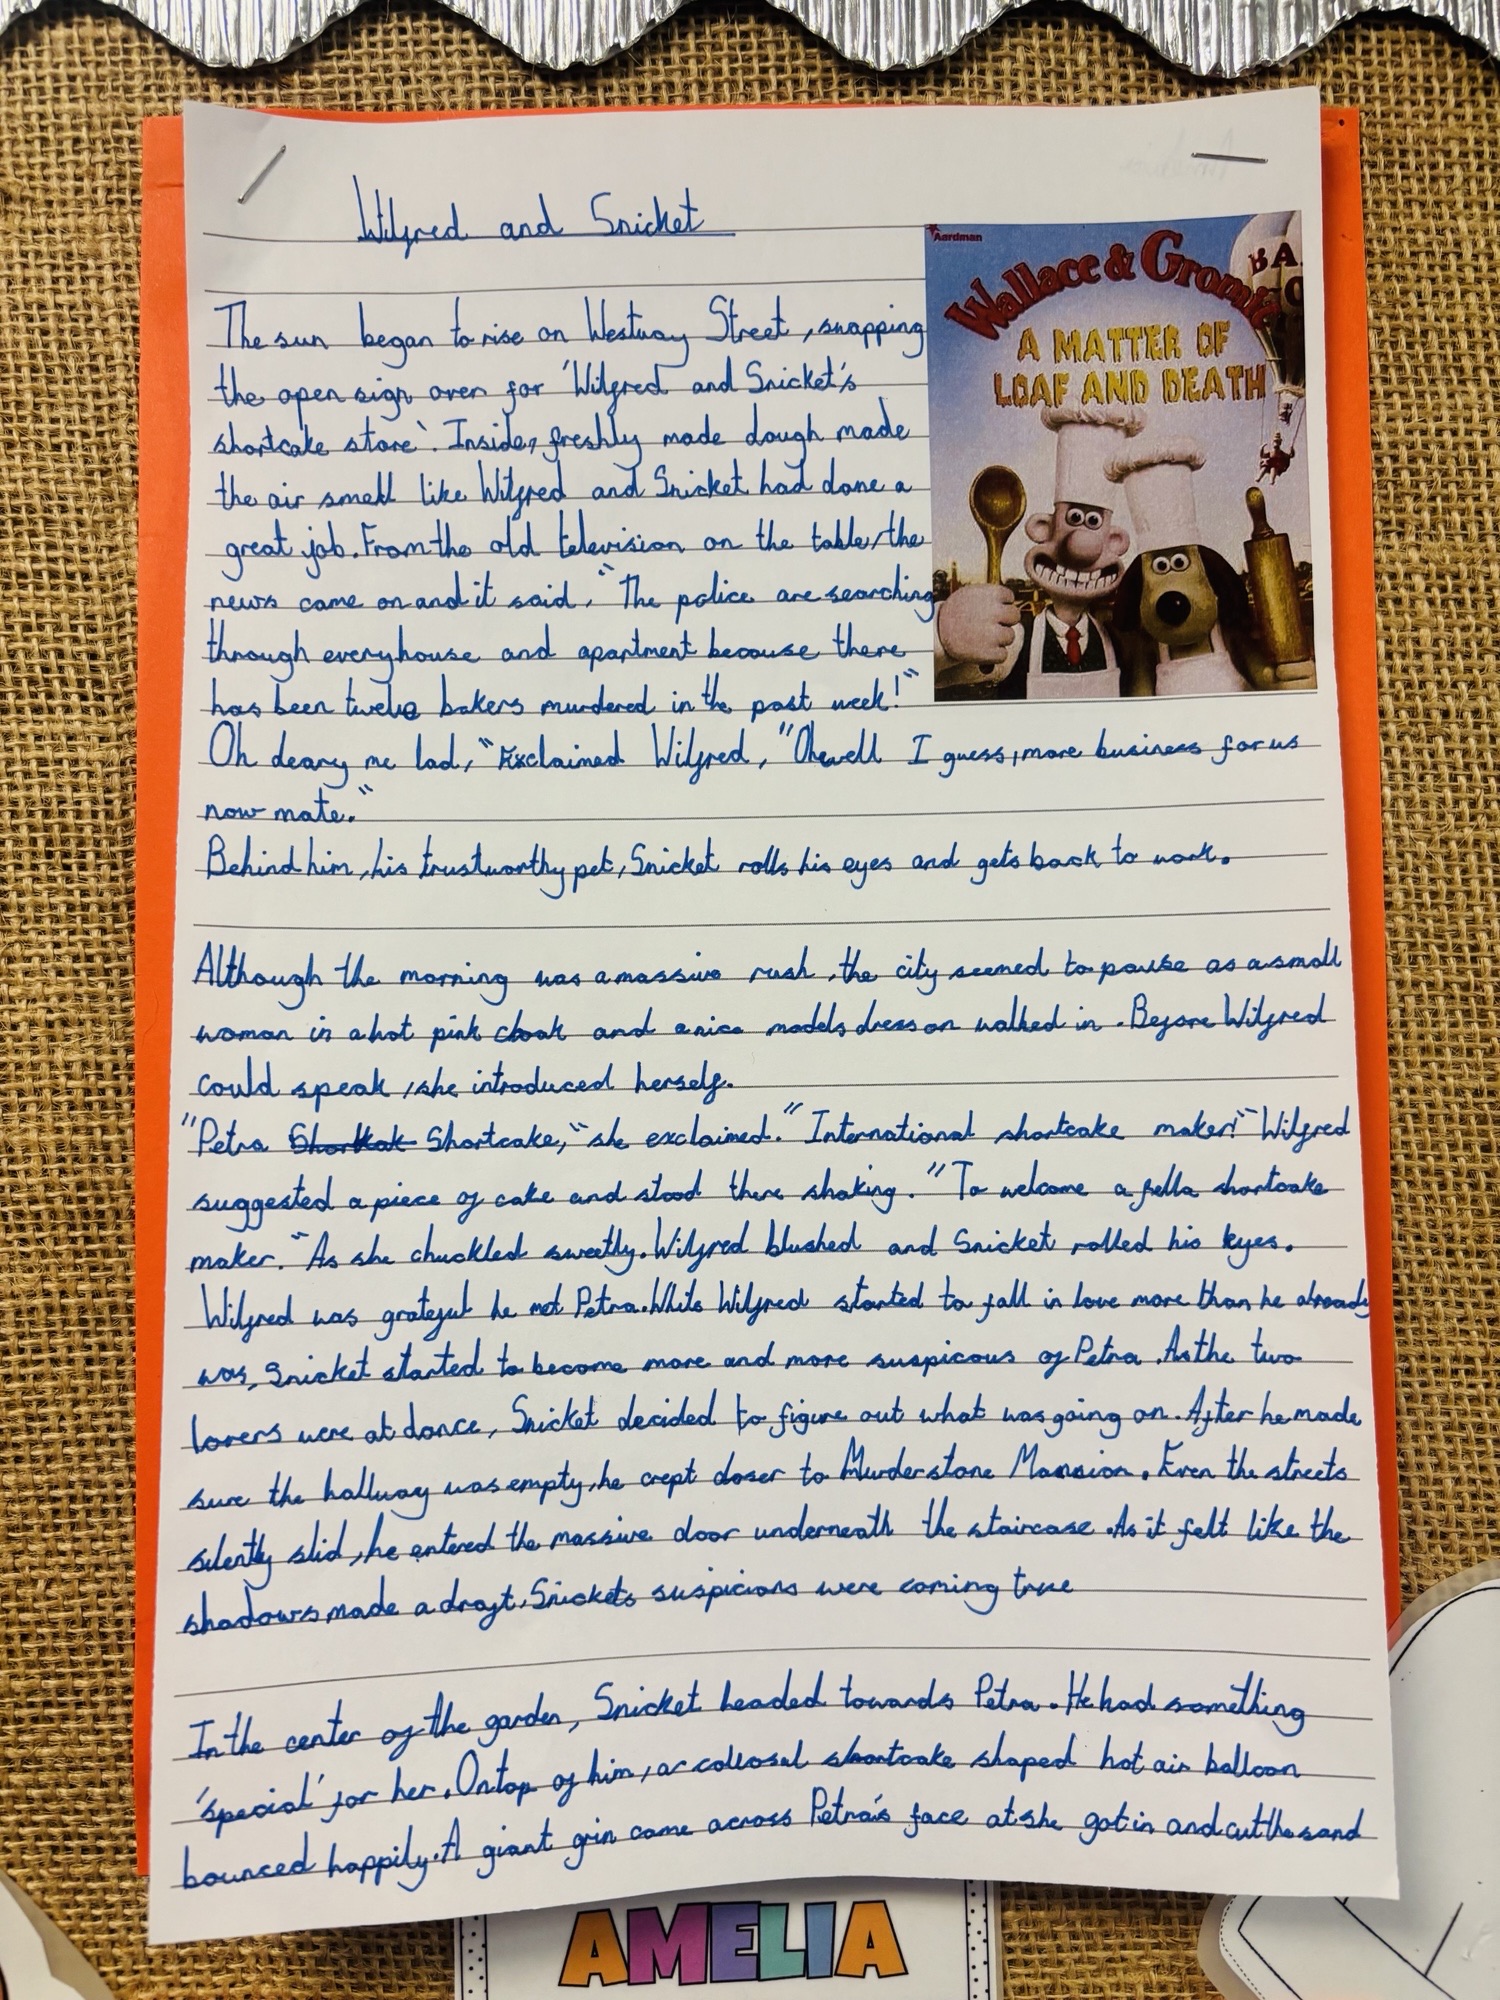 Wilfred and Snicket
Aardman
Wallace & Gromit
A MATTER OF
LOAF AND DEATH
BA
The sun began to rise on Westway Street, swapping
the open sign over for 'Wilfred and Snicket's
shortcake store'. Inside, freshly made dough made
the air smell like Wilfred and Snicket had done a
great job. From the old television on the table, the
news came on and it said, "The police are searching
through every house and apartment because there
has been twelve bakers murdered in the past week!"
Oh deary me lad," Exclaimed Wilfred, "Oh well I guess, more business for us
now mate."
Behind him, his trustworthy pet, Snicket rolls his eyes and gets back to work.
Although the morning was a massive rush, the city seemed to pause as a small
woman in a hot pink cloak and a nice models dress on walked in. Before Wilfred
could speak, she introduced herself.
"Petra Shortcake," she exclaimed. "International shortcake maker!" Wilfred
suggested a piece of cake and stood there shaking. "To welcome a fella shortcake
maker." As she chuckled sweetly. Wilfred blushed and Snicket rolled his eyes.
Wilfred was grateful he met Petra. While Wilfred started to fall in love more than he already
was, Snicket started to become more and more suspicous of Petra. As the two
lovers were at dance, Snicket decided to figure out what was going on. After he made
sure the hallway was empty, he crept closer to Murderstone Mansion. Even the streets
silently slid, he entered the massive door underneath the staircase. As it felt like the
shadows made a draft, Snickets suspicions were coming true
In the center of the garden, Snicket headed towards Petra. He had something
'special' for her. On top of him, a collosal shortcake shaped hot air balloon
bounced happily. A giant grin came across Petra's face at she got in and cut the sand
AMELIA